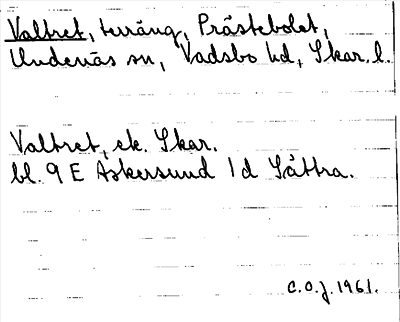 Valtret, terräng, Prästebolet,
Undenäs sn, Vadsbo hd, Skar. l.
Valtret, ek. Skar.
bl. 9 E Askersund 1 d Sättra.
C.O.J. 1961.